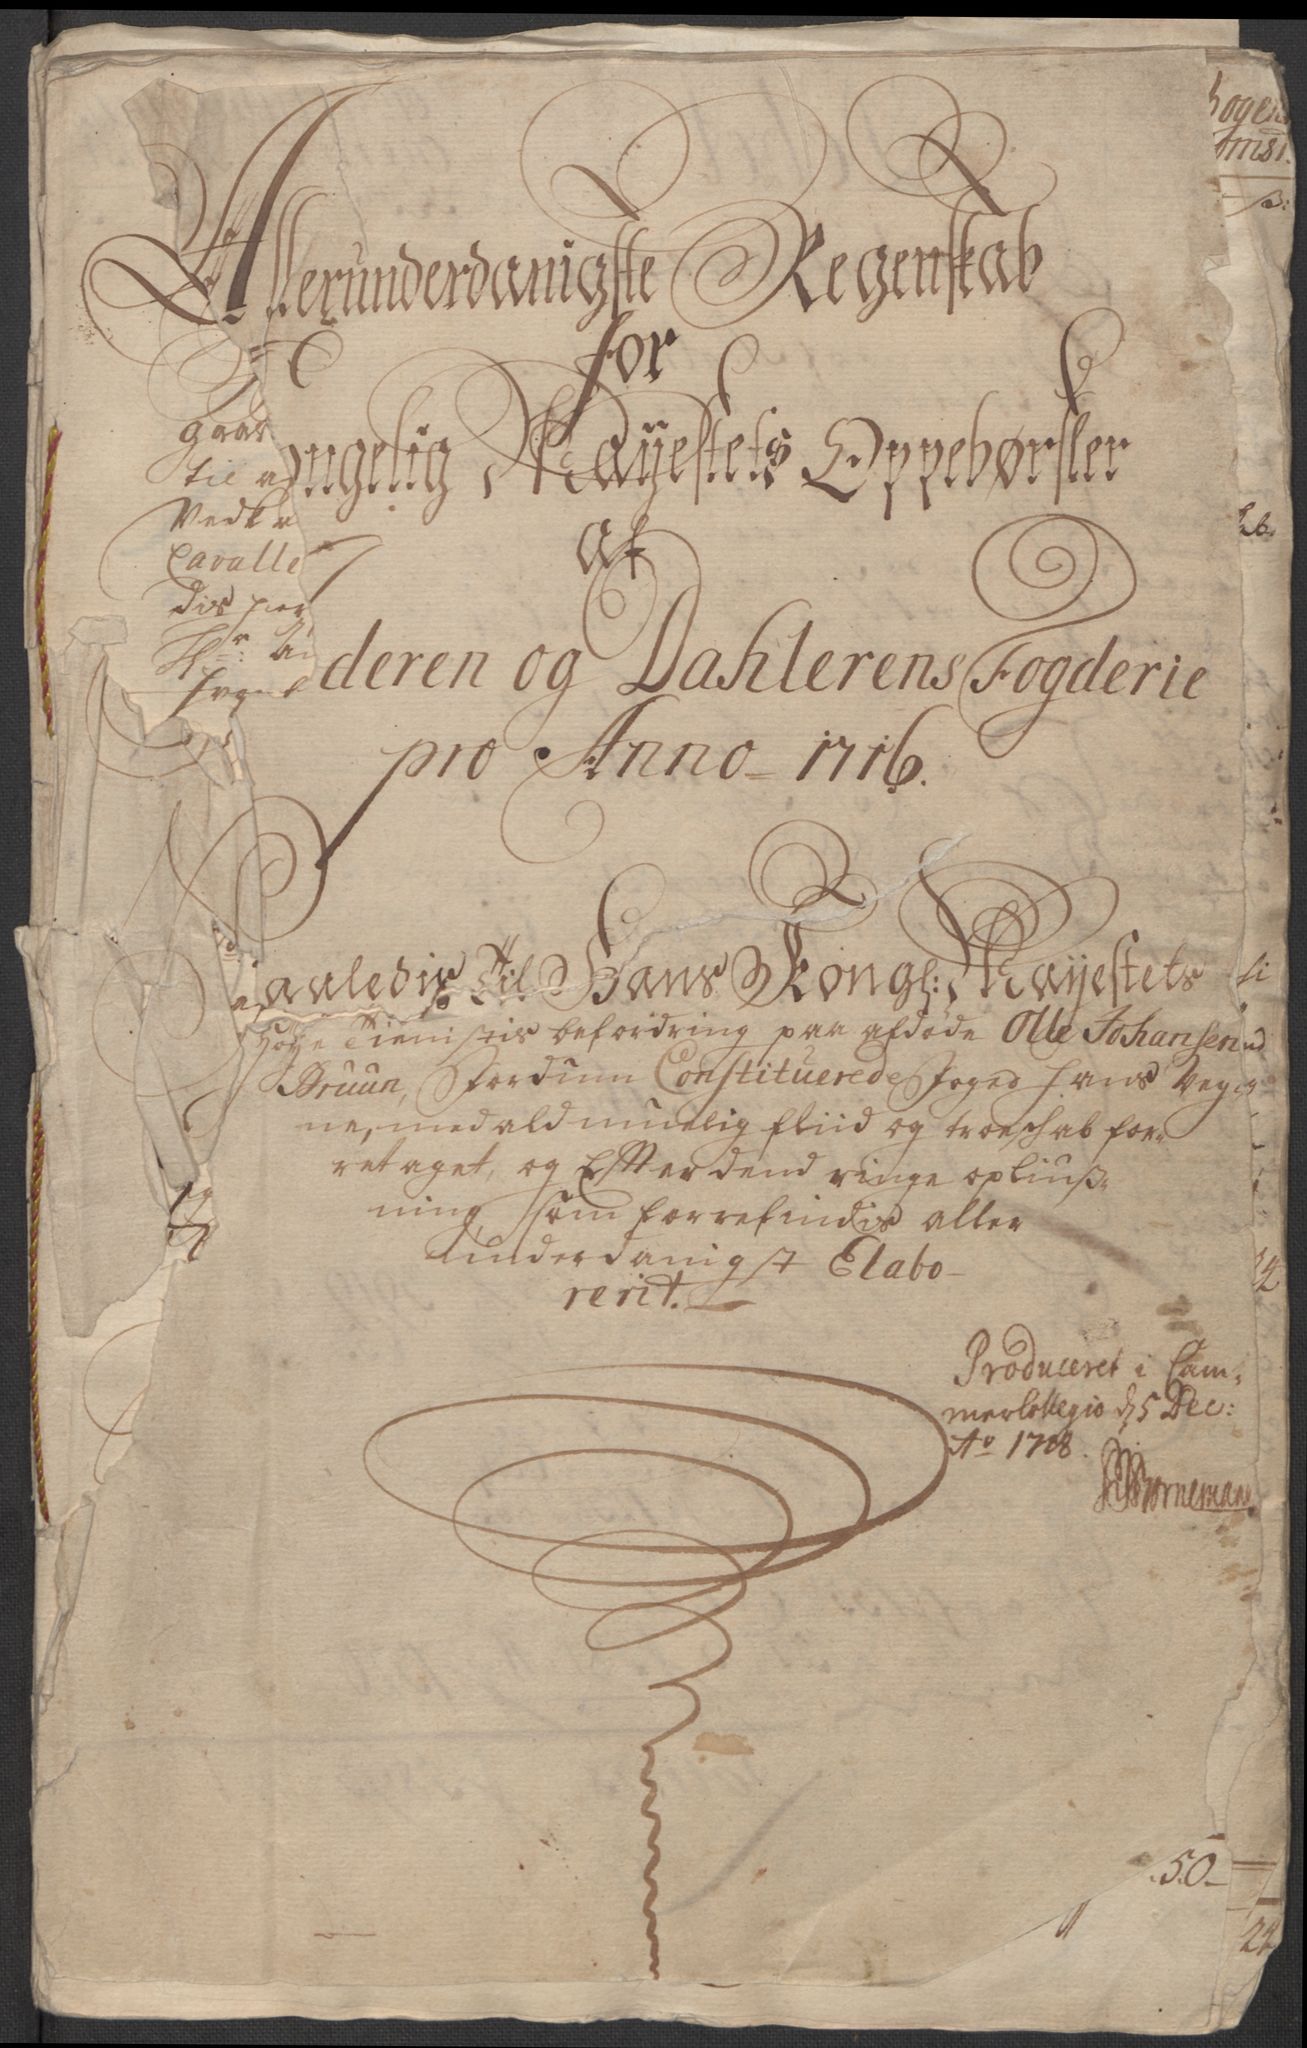 Allerunderdanigste Regenskab
for
ongelig Mayestets Oppebørsler
af
deren og Dahlerens Fogderie
pro Anno 1716.
aaledis Til Hans Kongl: Mayestets
Høye Tienistis befordring paa afdøde Olle Johansen
Bruun, Fordum Constituerede Foged hans Veg
ne, med ald muelig fliid og troeskab for
retaget, og Efter dend ringe opliuß
ning, som forrefindis aller
underdanigst Elabo
rerit.
Produceret i Cam
mer Collegio d 5 Dec:
Ao 1718.
Bornemann
til
Cavalle
50
24